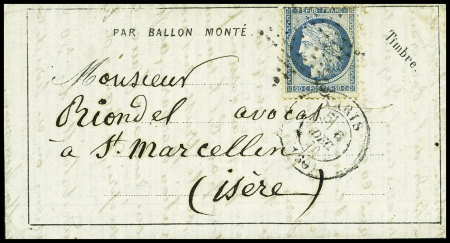 PAR BALLON MONTÉ.
Timbre.
REPUB. FRANC.
20 C. POSTES 20 C.
PARIS
6
DEC.
Monsieur
Riondel avocat
à St. Marcellin
(isère)